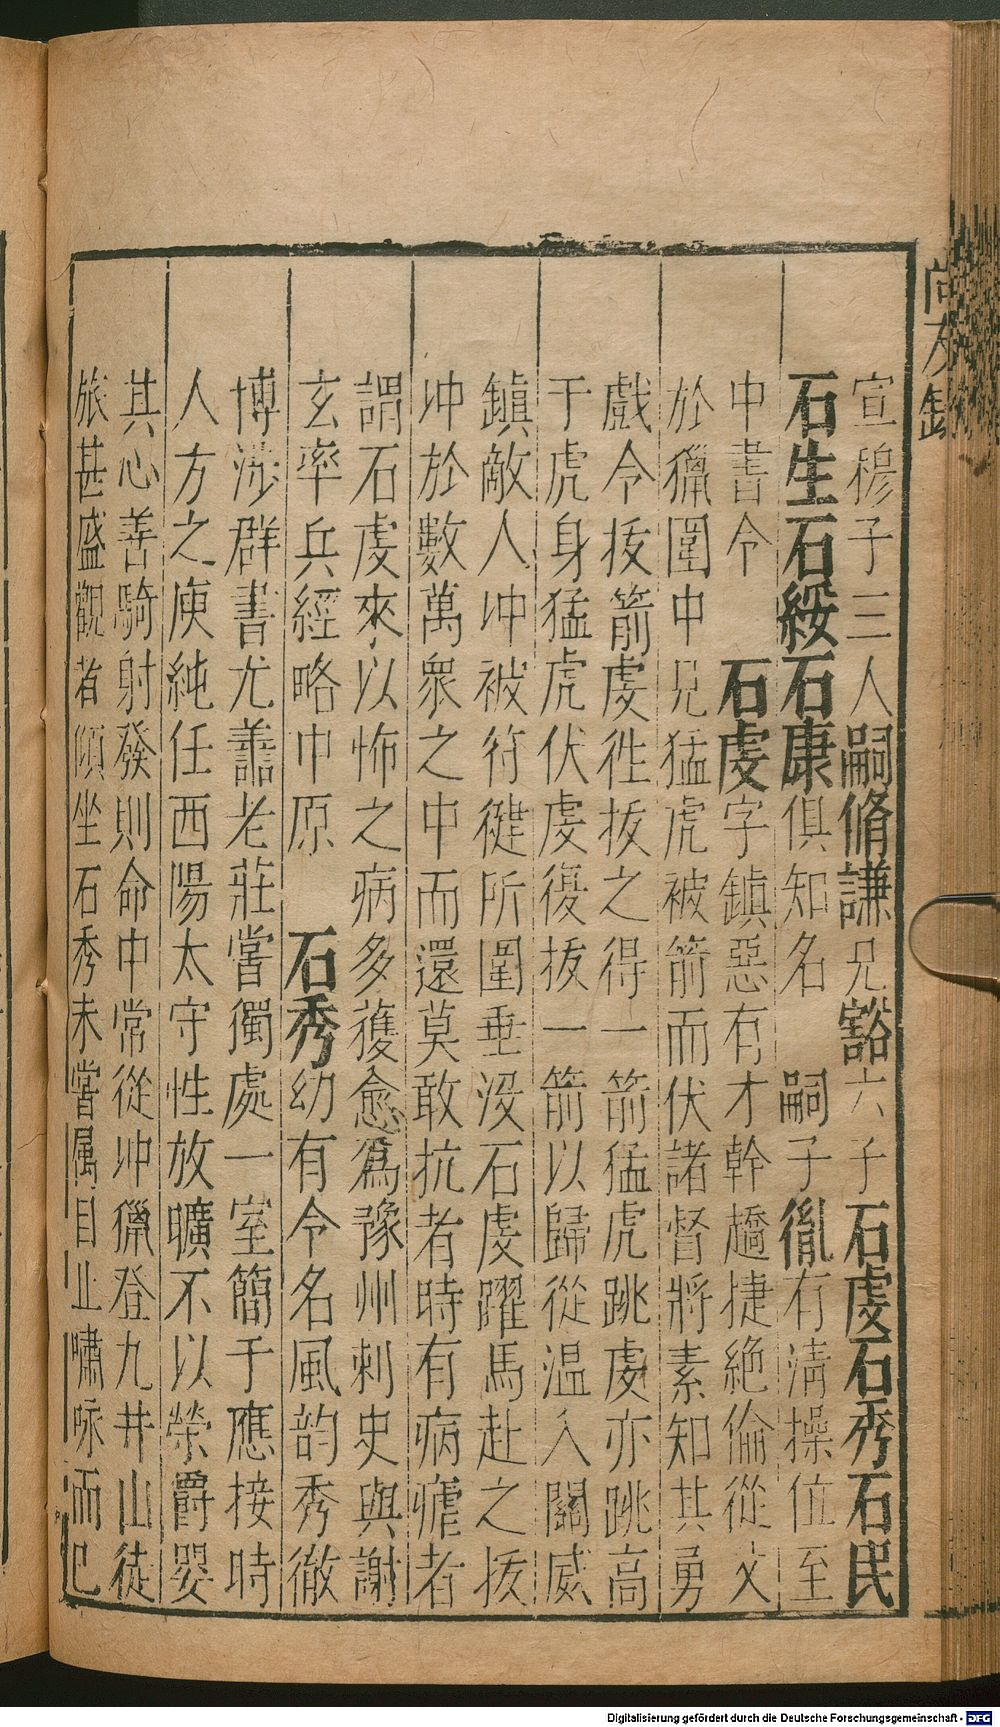 尚友錄
宣穆子三人嗣脩謙兄豁六子石虔石秀石民
石生石綏石康俱知名 嗣子胤有清操位至
中書令 石虔字鎮惡有才幹趫捷絕倫從父
於獵圍中見猛虎被箭而伏諸督將素知其勇
戲令拔箭虔徃拔之得一箭猛虎跳虔亦跳高
于虎身猛虎伏虔復拔一箭以歸從温入關威
鎮敵人冲被符健所圍垂没石虔躍馬赴之拔
冲於數萬衆之中而還莫敢抗者時有病瘧者
謂石虔來以怖之病多獲愈爲豫州刺史與謝
玄率兵經略中原 石秀幼有令名風韵秀徹
博涉群書尤譱老莊嘗獨處一室簡于應接時
人方之庾純任西陽太守性放曠不以榮爵嬰
其心善騎射發則命中常從冲獵登九井山徒
旅甚盛觀者傾坐石秀未嘗属目止嘯咏而已
Digitalisierung gefördert durch die Deutsche Forschungsgemeinschaft - DFG